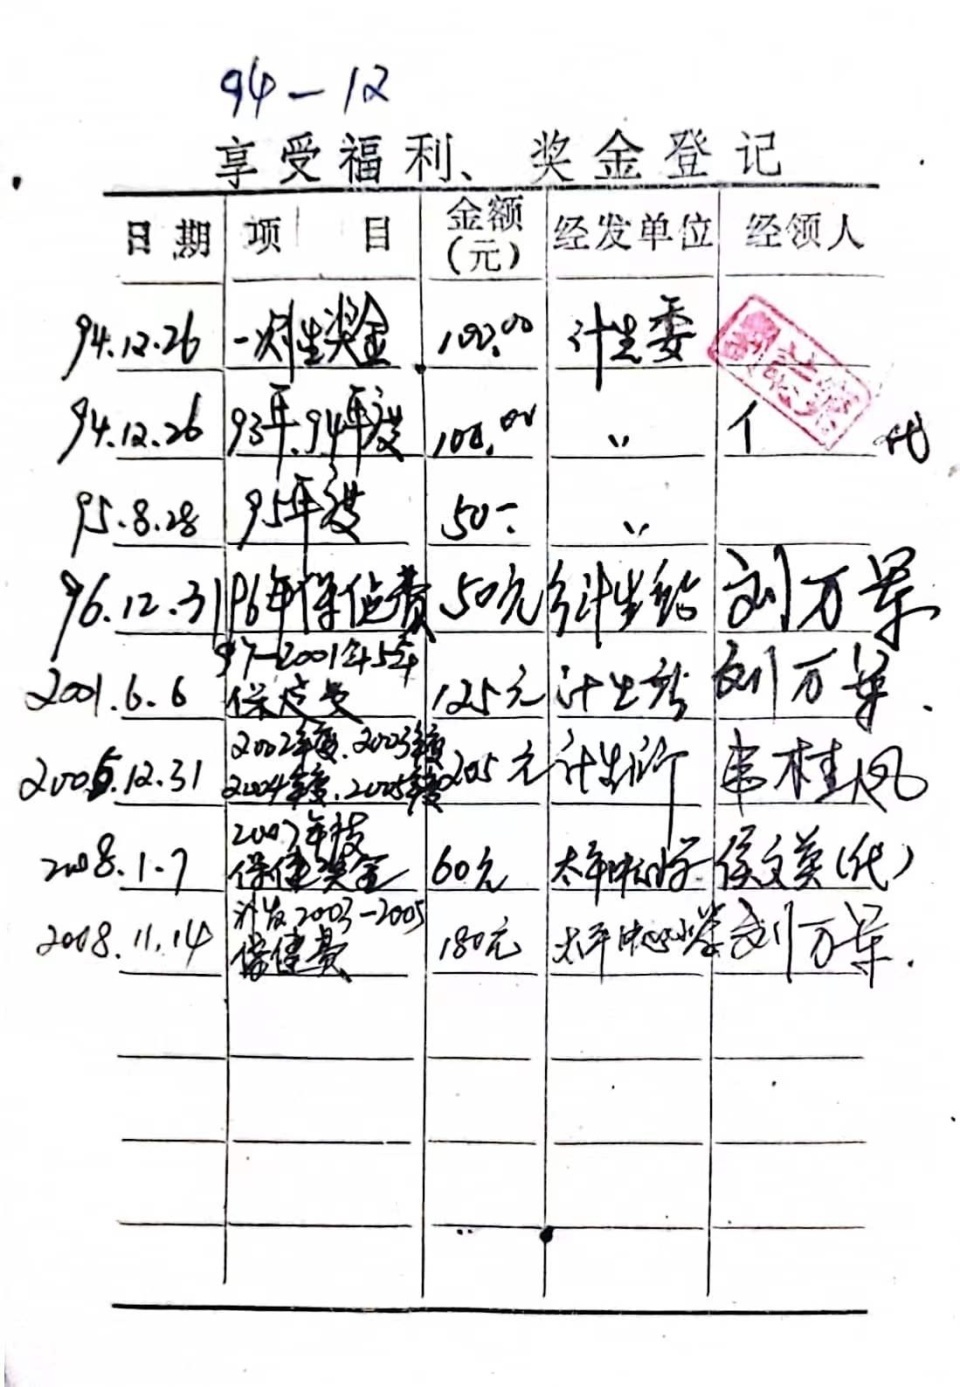 94-12
享受福利、奖金登记
日期 项目 金额(元) 经发单位 经领人
94.12.26 一次性奖金 100.00 计生委
94.12.26 93年、94年度 100.00 〃 代
95.8.28 95年度 50- 〃
96.12.31 96年保健费 50元 计生 刘万军
97-2001年5年
2001.6.6 保健费 125元 计生 刘万军.
2002年度、2003年度
2005.12.31 2004年度、2005年度 205元 计生所 韦桂凤
2007年度
2008.1.7 保健奖金 60元 太平中心小学 侯文英(代)
补发2003-2005
2008.11.14 保健费 180元 太平中心小学 刘万军.